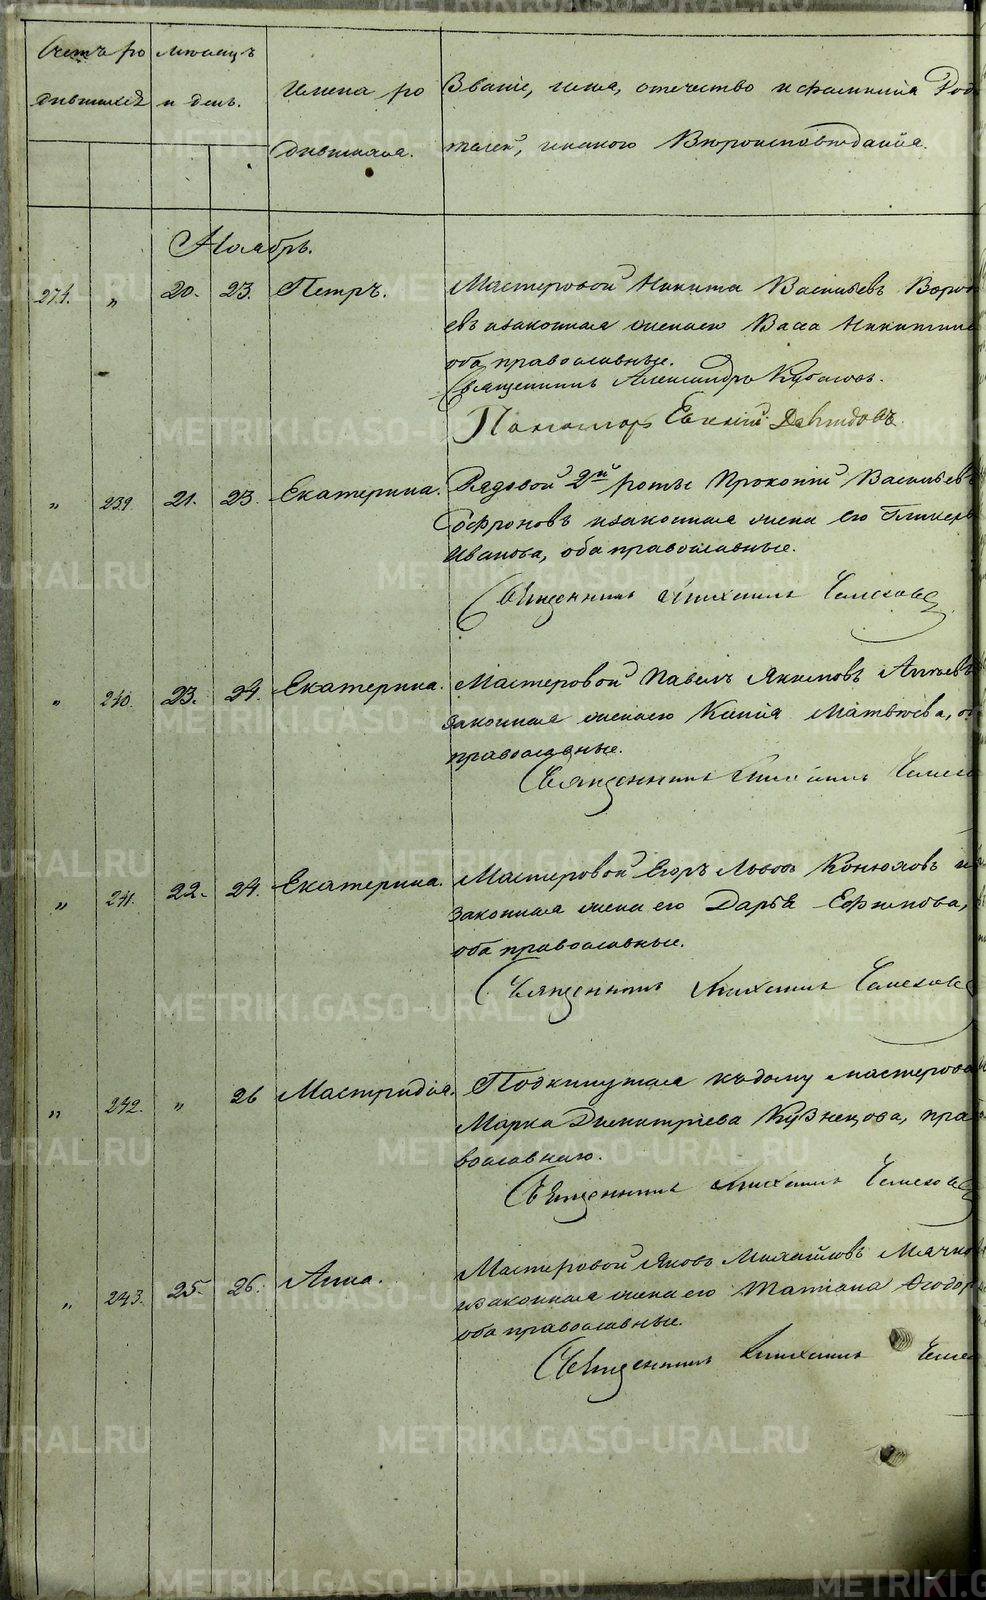 Счетъ ро мѣсяцъ
дившихся и день.
Имена ро
дившихся.
Званіе, имя, отечество и фамилія Род
телей, и какого Вѣроисповѣданія.
Ноябрь.
274. „ 20. 23. Петръ. Мастеровой Никита Васильевъ Ворон
евъ и законная жена его Васса Никитина
оба православные.
Священникъ Александръ
Пономарь Евгеній Давыдовъ.
„ 239. 21. 23. Екатерина. Рядовой 2й роты Прокопій Васильевъ
Софроновъ и законная жена его Гликерія
Иванова, оба православные.
Священникъ Михаилъ
„ 240. 23. 24. Екатерина. Мастеровой Павелъ Якимовъ
законная жена его Ксенія Матвѣева, об
православные.
Священникъ Михаилъ
„ 241. 22. 24. Екатерина. Мастеровой Егоръ Львовъ Конюховъ и
законная жена его Дарья Ефимова,
оба православные.
Священникъ Михаилъ
„ 242. „ 26 Мастридія. Подкинутая къ дому мастероваго
Марка Димитріева Кузнецова, пра
вославнаго.
Священникъ Михаилъ
„ 243. 25. 26. Анна. Мастеровой Яковъ Михайловъ Мячко
и законная жена его Татіана Ѳеодор
оба православные.
Священникъ Михаилъ
METRIKI.GASO-URAL.RU